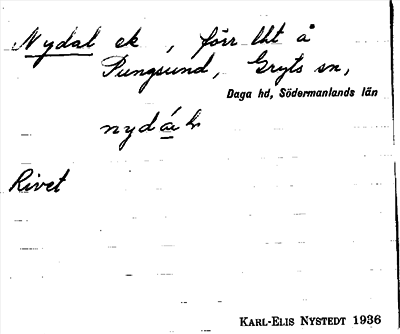 Nydal ek , förr lht å
Pungsund, Gryts sn,
Daga hd, Södermanlands län
Rivet
KARL-ELIS NYSTEDT 1936